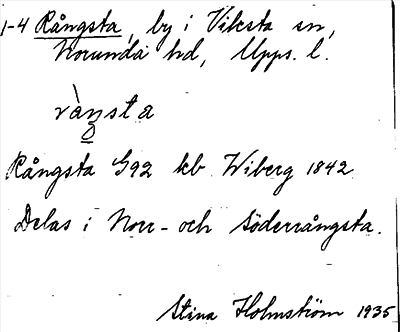 1-4 Rångsta, by i Viksta sn,
Norunda hd, Upps. l.
ràŋsta
Rångsta G92 kb Wiberg 1842
Delas i Norr- och Söderrångsta.
Stina Holmström 1935